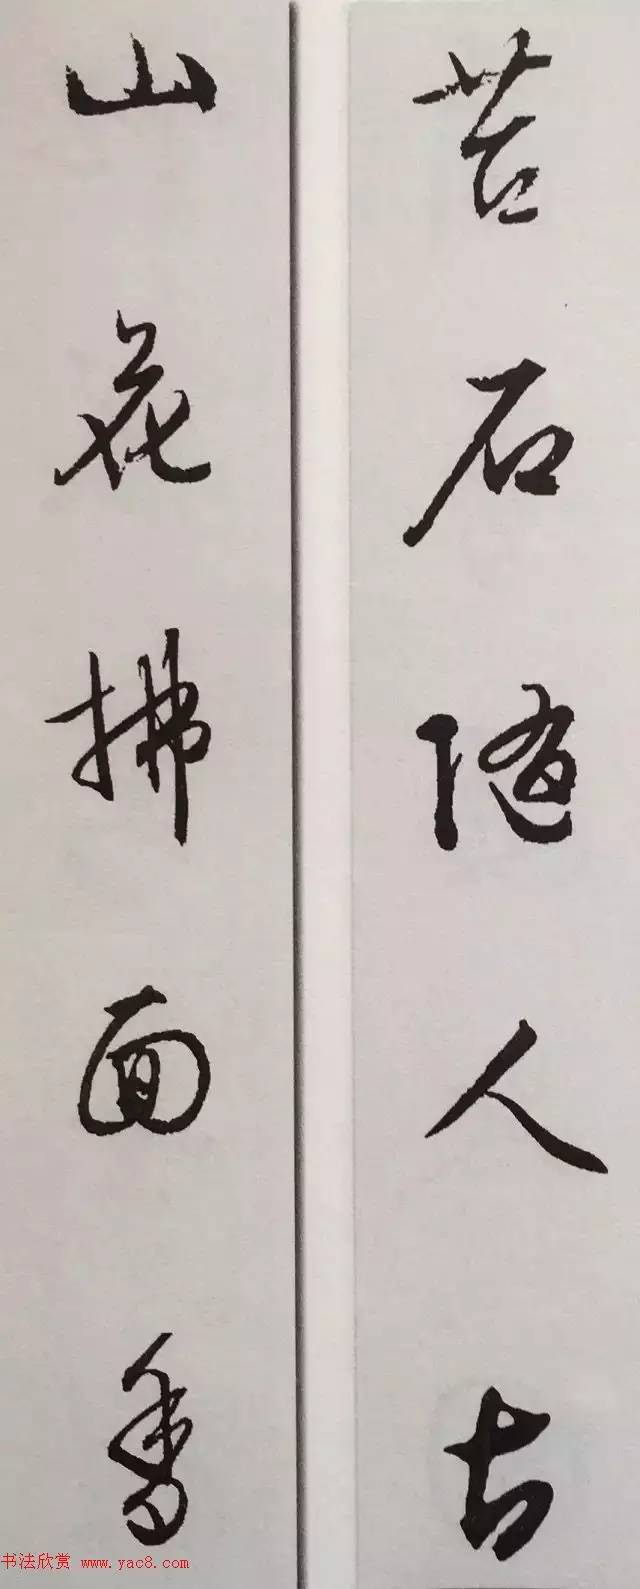 苔石随人古
山花拂面香
书法欣赏 www.yac8.com